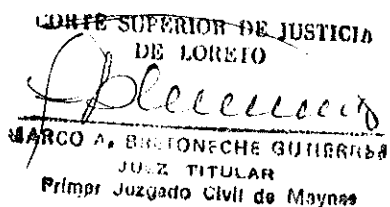 CORTE SUPERIOR DE JUSTICIA
DE LORETO
MARCO A. BRETONECHE GUTIERREZ
JUEZ TITULAR
Primer Juzgado Civil de Maynas